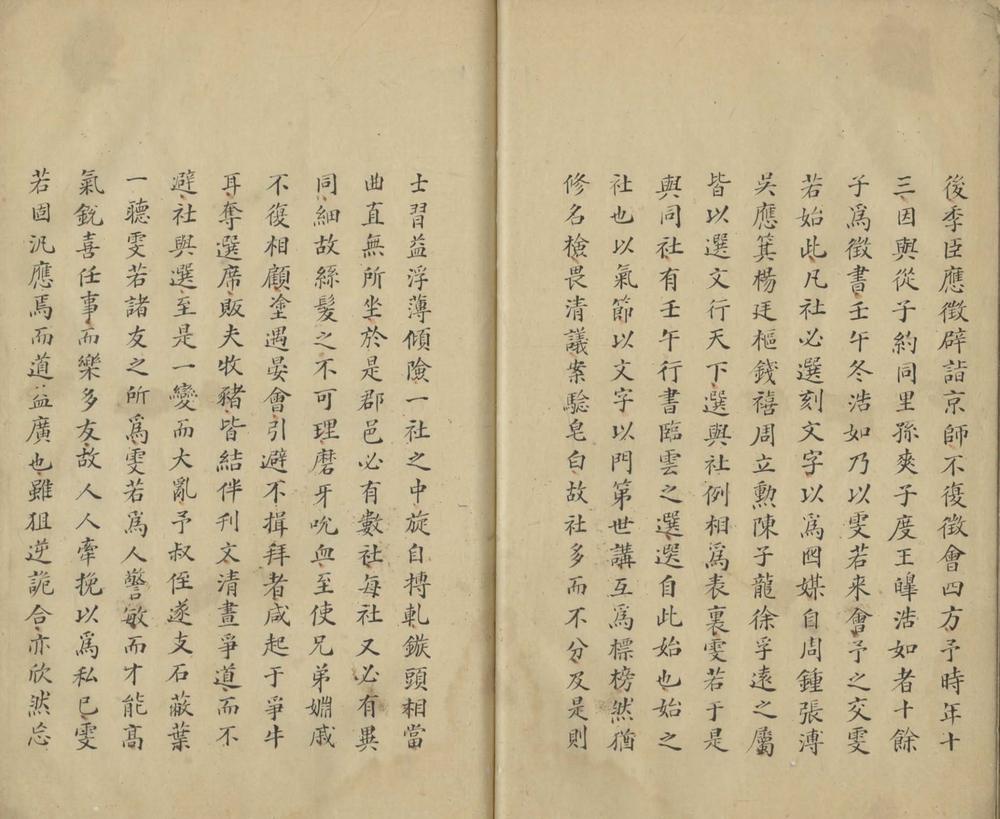 後季臣應徵辟詣京師不復徵會四方予時年十
三因與從子約同里孫爽子度王皞浩如者十餘
子爲徵書壬午冬浩如乃以雯若來會予之交雯
若始此凡社必選刻文字以爲囮媒自周鍾張溥
吳應箕楊廷樞錢禧周立勳陳子龍徐孚遠之屬
皆以選文行天下選與社例相爲表裏雯若于是
與同社有壬午行書臨雲之選選自此始也始之
社也以氣節以文字以門第世講互爲標榜然猶
修名檢畏清議案驗皂白故社多而不分及是則
士習益浮薄傾險一社之中旋自搏軋鏃頭相當
曲直無所坐於是郡邑必有數社每社又必有異
同細故絲髮之不可理磨牙吮血至使兄弟婣戚
不復相顧塗遇宴會引避不揖拜者咸起于爭牛
耳奪選席販夫牧豬皆結伴刊文清晝爭道而不
避社與選至是一變而大亂予叔侄遂支石蔽葉
一聽雯若諸友之所爲雯若爲人警敏而才能高
氣銳喜任事而樂多友故人人牽挽以爲私已雯
若固汎應焉而道益廣也雖狙逆詭合亦欣然忘